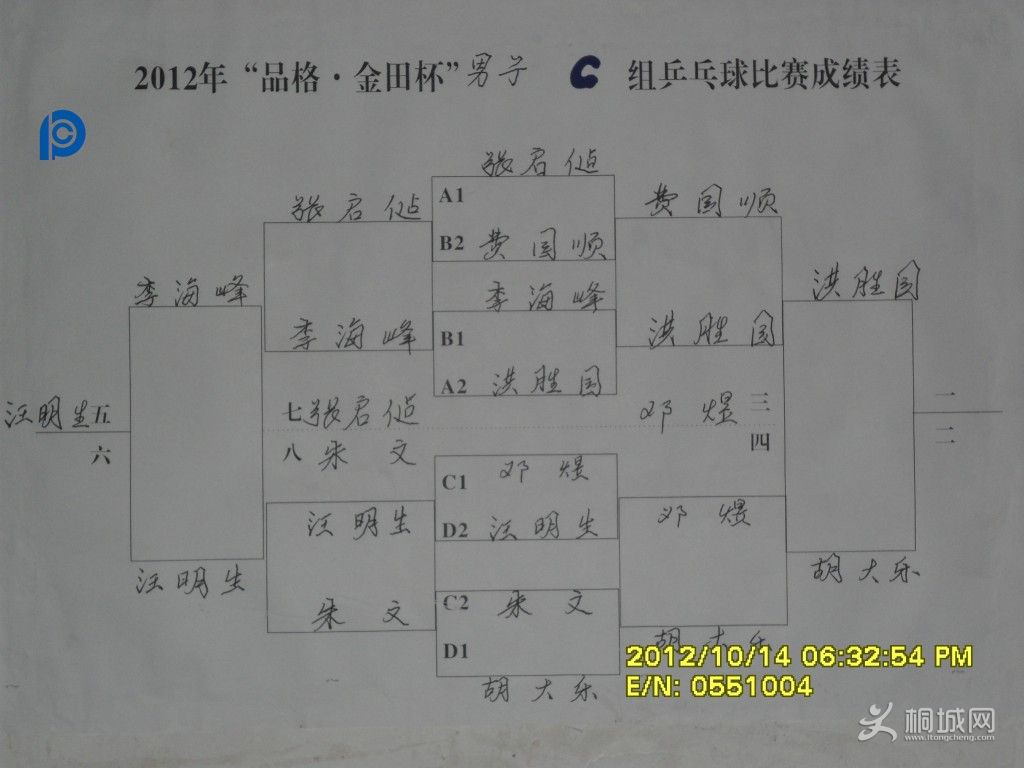 2012年“品格·金田杯”男子 C 组乒乓球比赛成绩表
张君
A1
张君
费国顺
B2 费国顺
李海峰
李海峰
洪胜国
李海峰
B1
洪胜国
A2 洪胜国
汪明生 五
七 张君
邓煜 三
一
六
八 朱文
四
二
C1 邓煜
汪明生
D2 汪明生
邓煜
汪明生
胡大乐
朱文
C2 朱文
胡大乐
D1
胡大乐
2012/10/14 06:32:54 PM
E/N: 0551004
桐城网
www.itongcheng.com